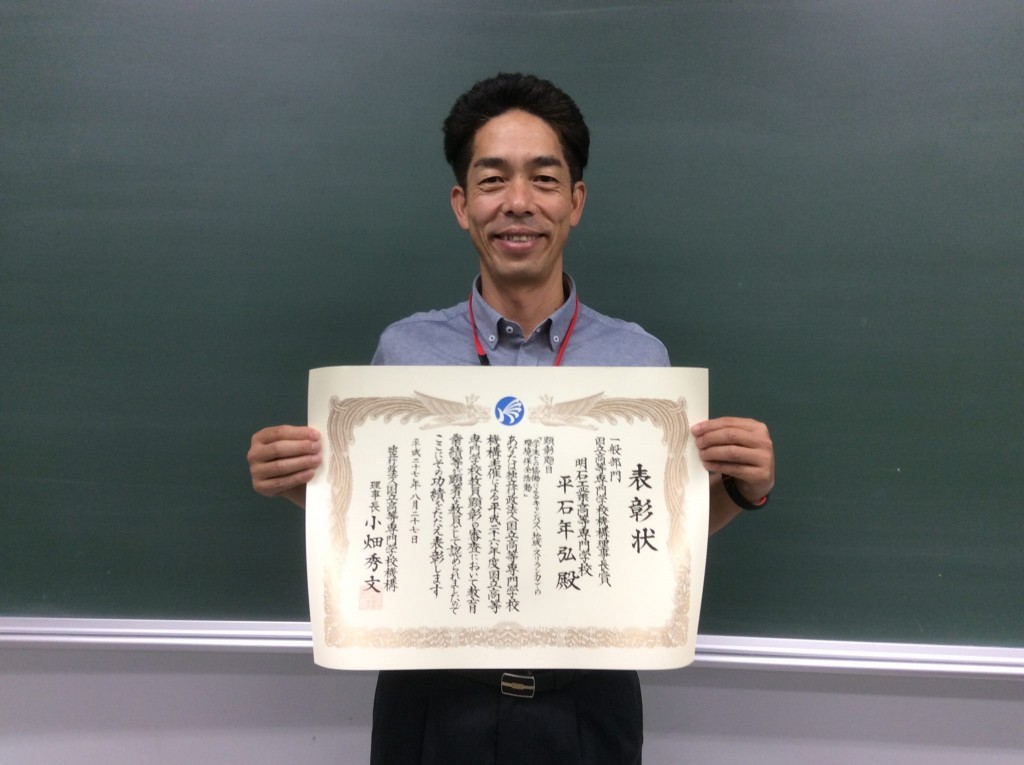 表彰状
一般部門
国立高等専門学校機構理事長賞
明石工業高等専門学校
平石年弘殿
顕彰題目
「学生との協働によるキャンパス、地域、スリランカでの
環境保全活動」
あなたは独立行政法人国立高等専門学校
機構主催による平成二十六年度国立高等
専門学校教員顕彰の審査において教育
業績等が顕著な教員として認められましたので
ここにその功績をたたえ表彰します
平成二十七年八月二十七日
独立行政法人国立高等専門学校機構
理事長 小畑秀文